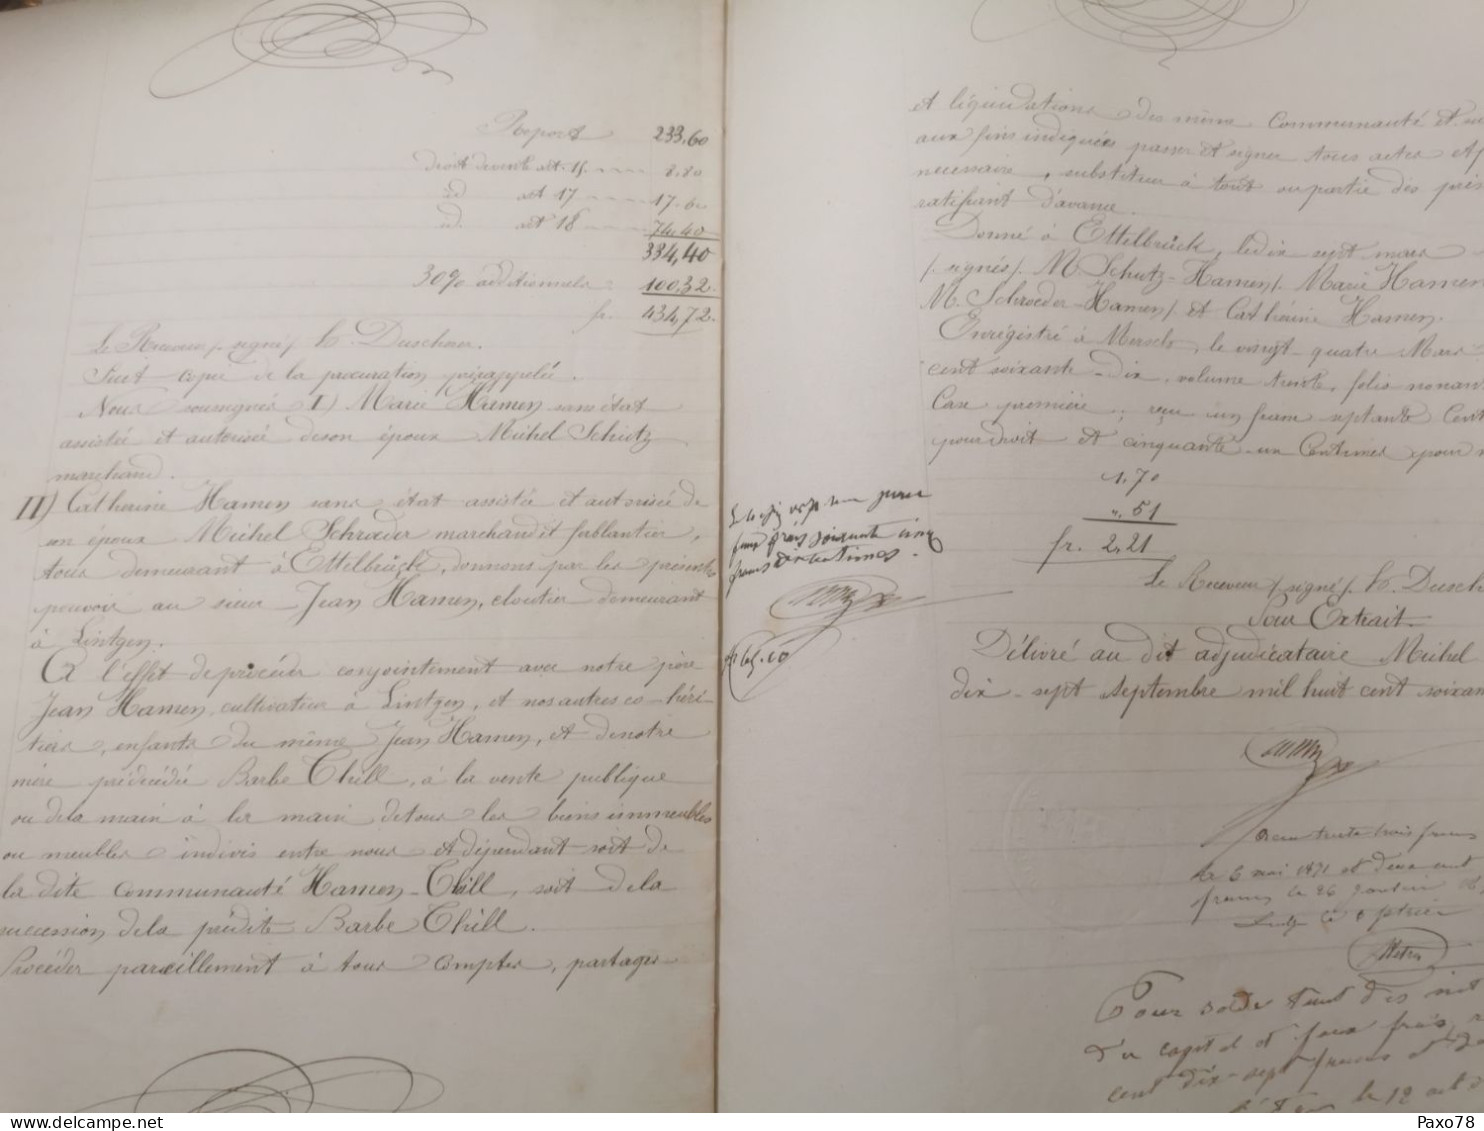 Report 233,60
droit de vente art. 15. 8.80
id art 17 17.60
id. art 18 74.40
334,40
30% additionnels 100.32
fr. 434,72
Le Receveur / signé / h. Duscherer.
Suit copie de la procuration prérappelée.
Nous soussignés I) Marie Hamen sans état
assistée et autorisée de son époux Michel Schutz
marchand.
II) Catherine Hamen sans état assistée et autorisée de
son époux Michel Schroeder marchand et ferblantier,
tous demeurant à Ettelbrück, donnons par les présentes
pouvoir au sieur Jean Hamen, cloutier demeurant
à Lintgen.
A l'effet de procéder conjointement avec notre père
Jean Hamen cultivateur à Lintgen, et nos autres co-héri-
tiers, enfants du même Jean Hamen, et de notre
mère prédécédée Barbe Thill, à la vente publique
ou de la main à la main de tous les biens immeubles
ou meubles indivis entre nous et dépendant soit de
la dite communauté Hamen-Thill, soit de la
succession de la prédite Barbe Thill.
Procéder pareillement à tous comptes, partages
pour
frais soixante cinq
francs dix centimes.
65.10
et liquidations des même communauté et
aux fins indiquées passer et signer tous actes
necessaire, substituer à tout ou partie des
ratifiant d'avance.
Donné à Ettelbrück, le dix sept mars
/ signés / M. Schutz-Hamen / Marie Hamen
M. Schroeder-Hamen / et Cathérine Hamen.
Enrégistré à Mersch, le vingt-quatre Mars
cent soixante-dix, volume trente, folio
Case première, reçu un franc septante
pour droit et cinquante-un Centimes pour
1.70
". 51
fr. 2,21
Le Receveur / signé / h.
Pour Extrait.
Délivré au dit adjudicataire Michel
dix-sept septembre mil huit cent
Reçu trente trois francs
le 6 mai 1871 et deux cent
francs le 26 janvier
Pour solde tant des
du capital et pour frais
cent dix-sept francs et
le 12
delcampe.net
Paxo78